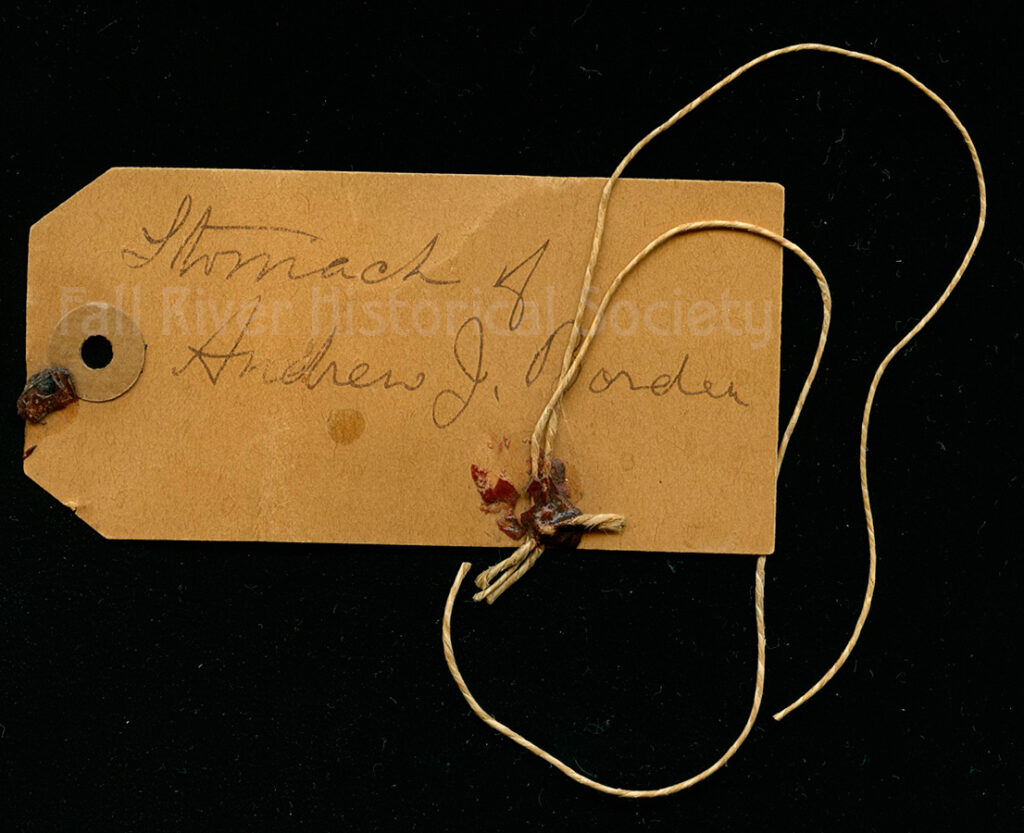 Stomach of
Fall River Historical Society
Andrew J. Borden